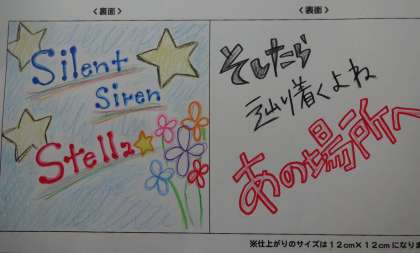 〈裏面〉
Silent
Siren
Stella
〈表面〉
そしたら
辿り着くよね
あの場所へ
※仕上がりのサイズは12cm×12cmになりま